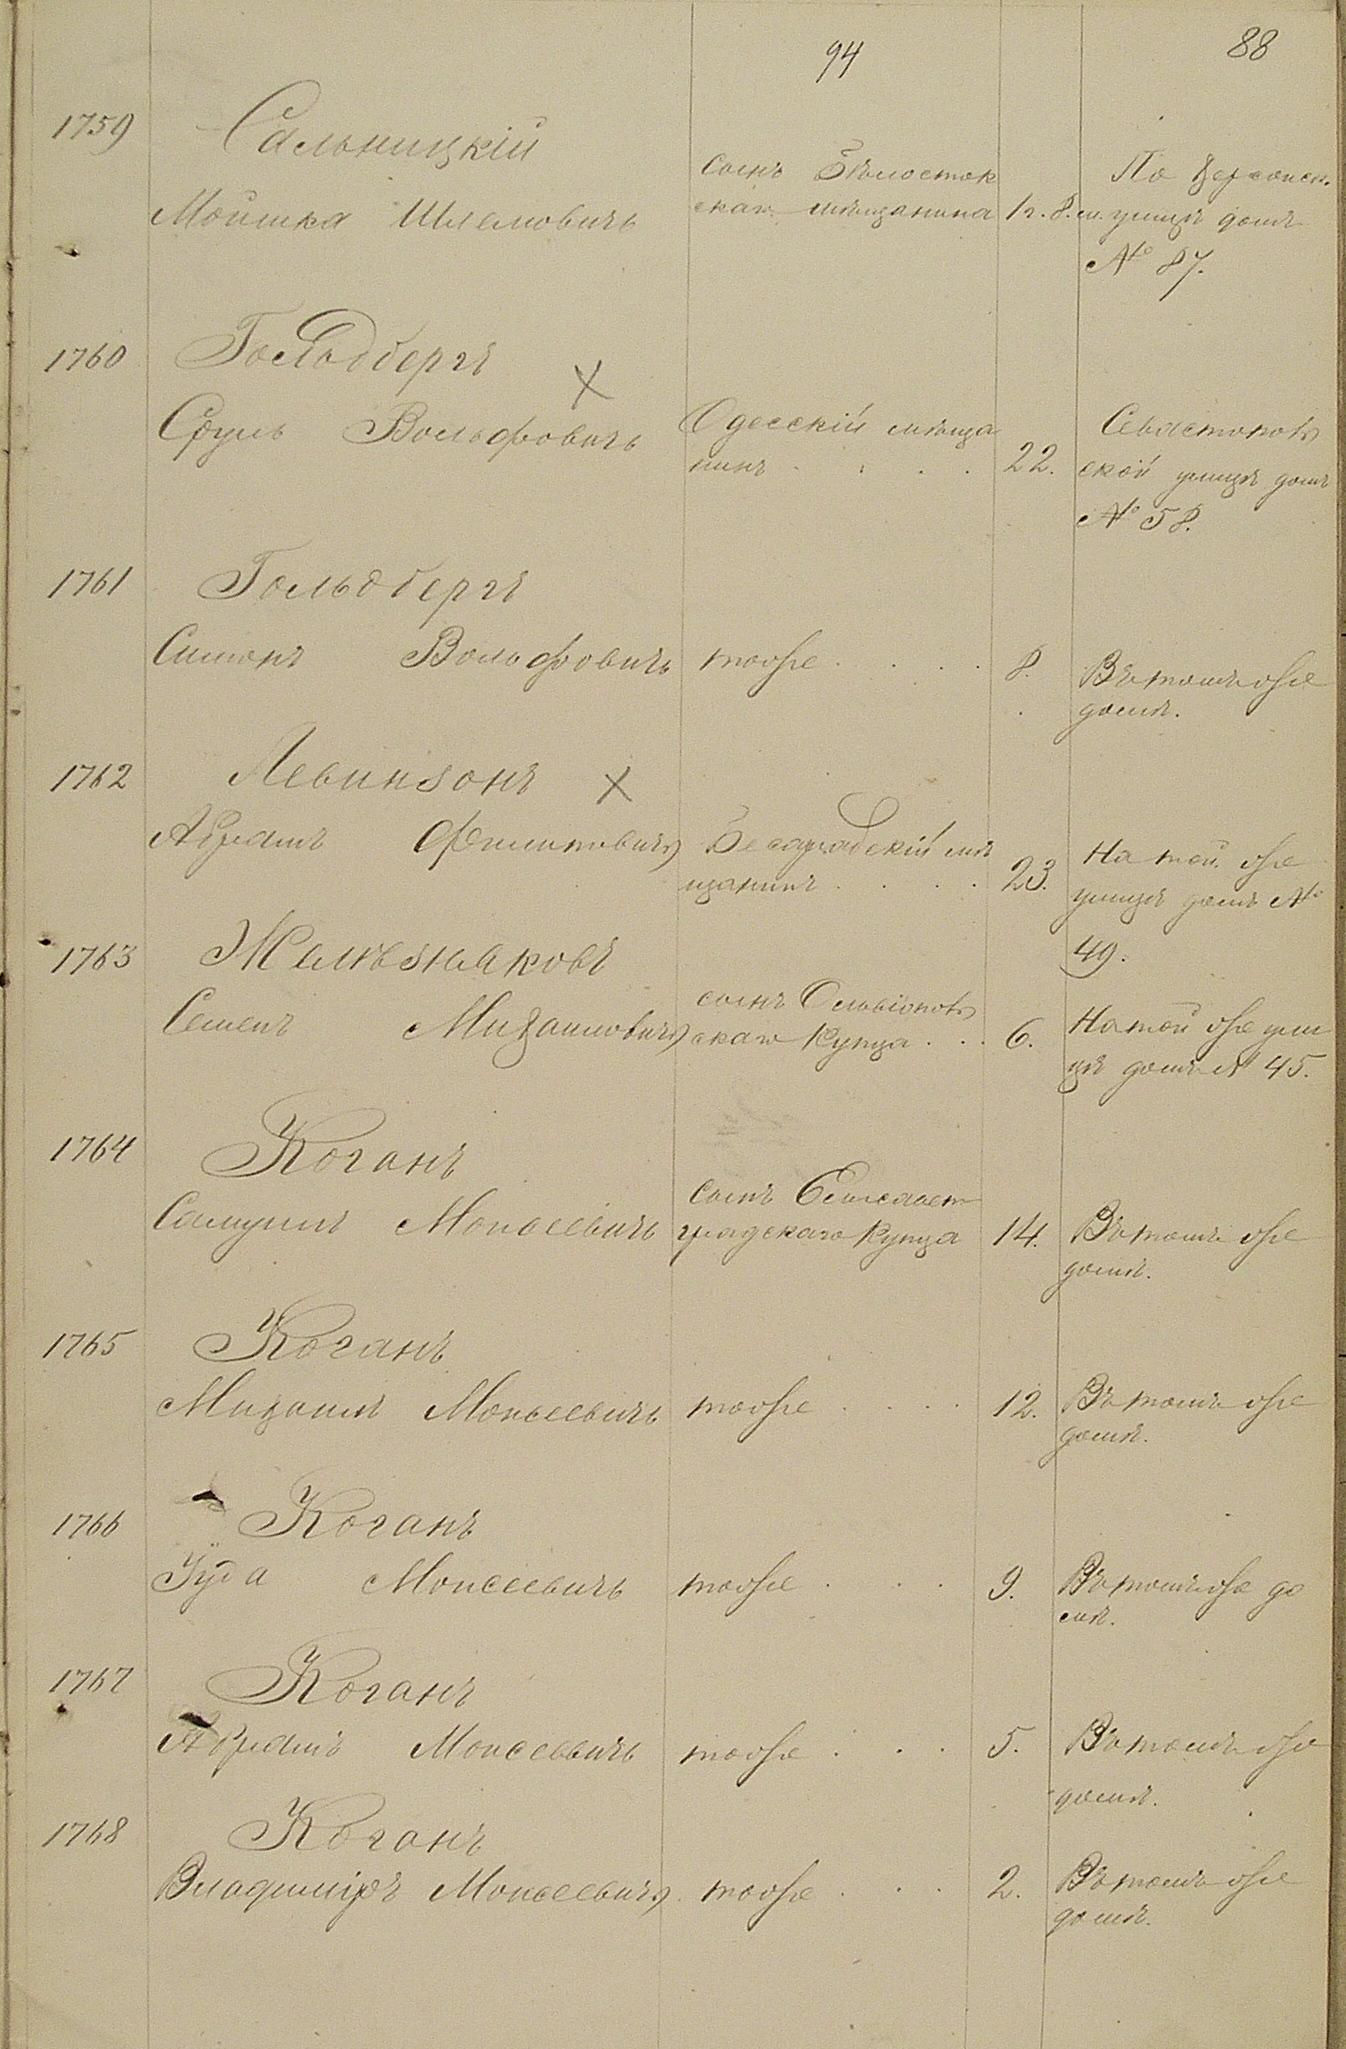 94
88
1759
Сальницкій
Мошка Шлемовичъ
сынъ Бѣлосток
скаго мѣщанина
1 г. 8 м.
По Херсонск.
улицѣ домъ
№ 87.
1760
Гольдбергъ
Х
Сруль Вольфовичъ
Одесскій мѣща
нинъ
22.
Севастополь
ской улицѣ домъ
№ 58.
1761
Гольдбергъ
Симонъ Вольфовичъ
тоже
8.
Въ томъ же
домѣ.
1762
Левинзонъ
Х
Абрамъ Филиповичъ
Бесарабскій мѣ
щанинъ
23.
На той же
улицѣ домъ №
49.
1763
Желѣзняковъ
Семенъ Михаиловичъ
сынъ Ольвіополь
скаго купца
6.
На той же ули
цѣ домъ № 45.
1764
Коганъ
Самуилъ Моисеевичъ
сынъ Елисавет
градскаго купца
14.
Въ томъ же
домѣ.
1765
Коганъ
Михаилъ Моисеевичъ
тоже
12.
Въ томъ же
домѣ.
1766
Коганъ
Іуда Моисеевичъ
тоже
9.
Въ томъ же до
мѣ.
1767
Коганъ
Абрамъ Моисеевичъ
тоже
5.
Въ томъ же
домѣ.
1768
Коганъ
Владиміръ Моисеевичъ
тоже
2.
Въ томъ же
домѣ.